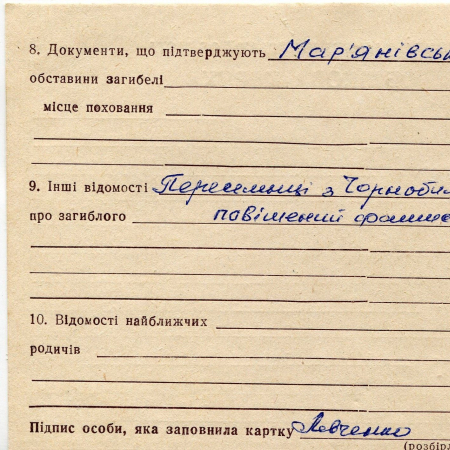 8. Документи, що підтверджують Мар'янівськ
обставини загибелі
місце поховання
9. Інші відомості Переселенці з Чорнобил
про загиблого повішений фашис
10. Відомості найближчих
родичів
Підпис особи, яка заповнила картку Левченко
(розбірл